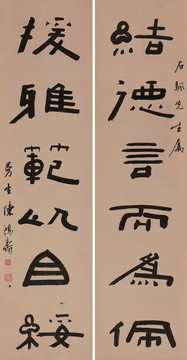 結德言而爲佩
石 先生屬
援雅範以自綏
曼生陳鴻壽